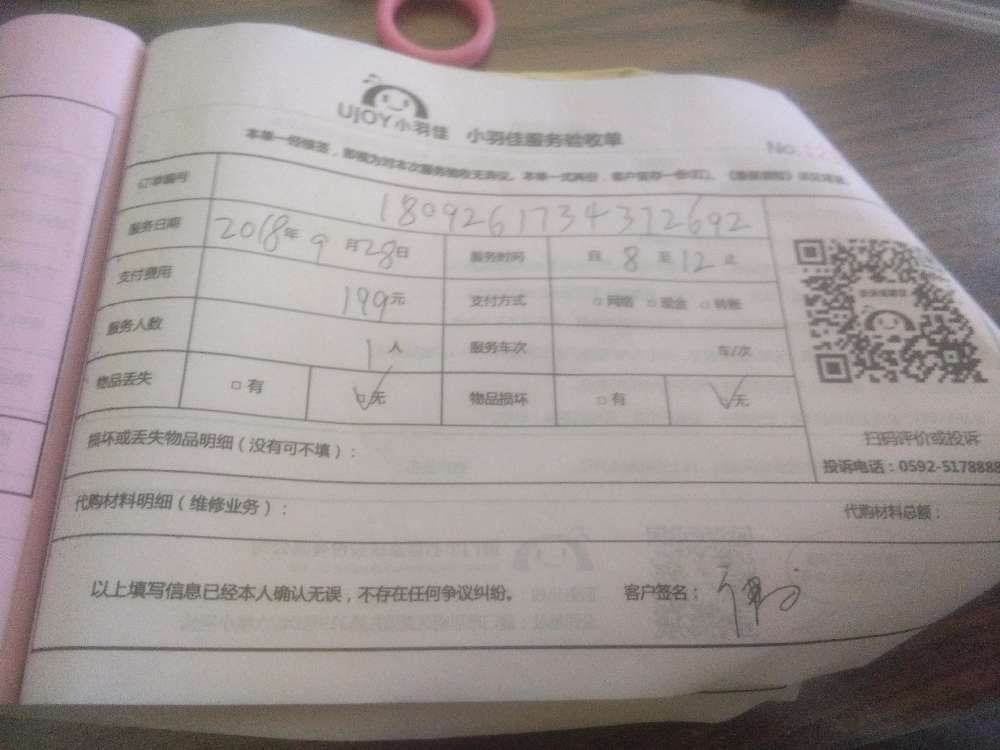 UJOY小羽佳 小羽佳服务验收单
No.
本单一经签送，即视为对本次服务验收无异议。本单一式两份，客户留存一份
订单编号 180926173437２692
服务日期 2018年9月28日 服务时间 自8至12止
支付费用 199元 支付方式 □网络 □现金 □转账
服务人数 1人 服务车次 车/次
物品丢失 □有 □无 物品损坏 □有 □无
扫码评价或投诉
投诉电话：0592-5178888
损坏或丢失物品明细（没有可不填）：
代购材料明细（维修业务）： 代购材料总额：
以上填写信息已经本人确认无误，不存在任何争议纠纷。 客户签名：